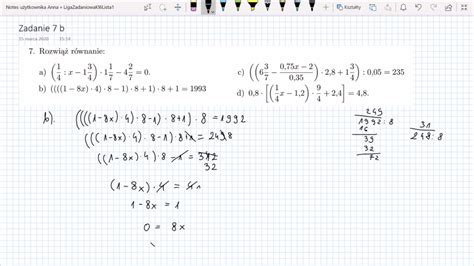 Notes użytkownika Anna » LigaZadaniowaKl6Lista1
Zadanie 7 b
15 marca 2020 15:14
7. Rozwiąż równanie:
a) (1/4 : x − 1 3/4) · 1 1/7 − 4 2/7 = 0.
b) ((((1 − 8x) · 4) · 8 − 1) · 8 + 1) · 8 + 1 = 1993
c) ((6 3/7 − (0,75x − 2)/0,35) · 2,8 + 1 3/4) : 0,05 = 235
d) 0,8 · [(1/4 x − 1,2) · 9/4 + 2,4] = 4,8.
b). ((((1-8x)·4)·8-1)·8+1)·8 = 1992
(((1-8x)·4)·8-1)·8+1 = 249
((1-8x)·4)·8-1 = 31
32
(1-8x)·4 = 4 1
1-8x = 1
0 = 8x
249
1992:8
16
39
32
72
31
248:8